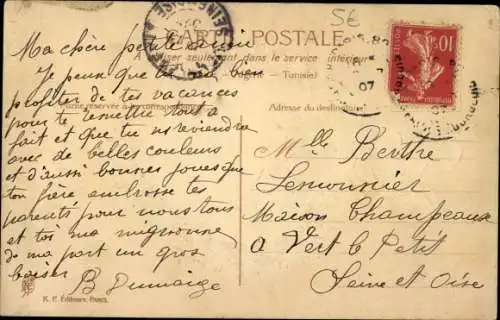 CARTE POSTALE
A utiliser seulement dans le service intérieur
Tunisie)
Correspondance réservée à la correspondance
Adresse du destinataire
Ma chère petite
Je pense que tu as bien
profiter de tes vacances
pour te remettre tout à
fait et que tu nous reviendra
avec de belles couleurs
et d'aussi bonnes joues que
ton frère embrasse tes
parents pour nous tous
et toi ma mignonne
de ma part un gros
baiser
B Dumaige
Mlle Berthe
Lemonnier
Maison Champeaux
à Vert le Petit
Seine et Oise
10
07
K. F. Éditeurs, Paris.